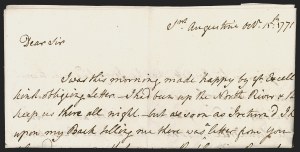 St. Augustine Octr. 12th. 1771
Dear Sir
I was this morning, made happy by yr. Excell
kind obliging letter - I had been up the North River &
keep us there all night - but as soon as I return'd I
upon my Back telling me there was letter from you